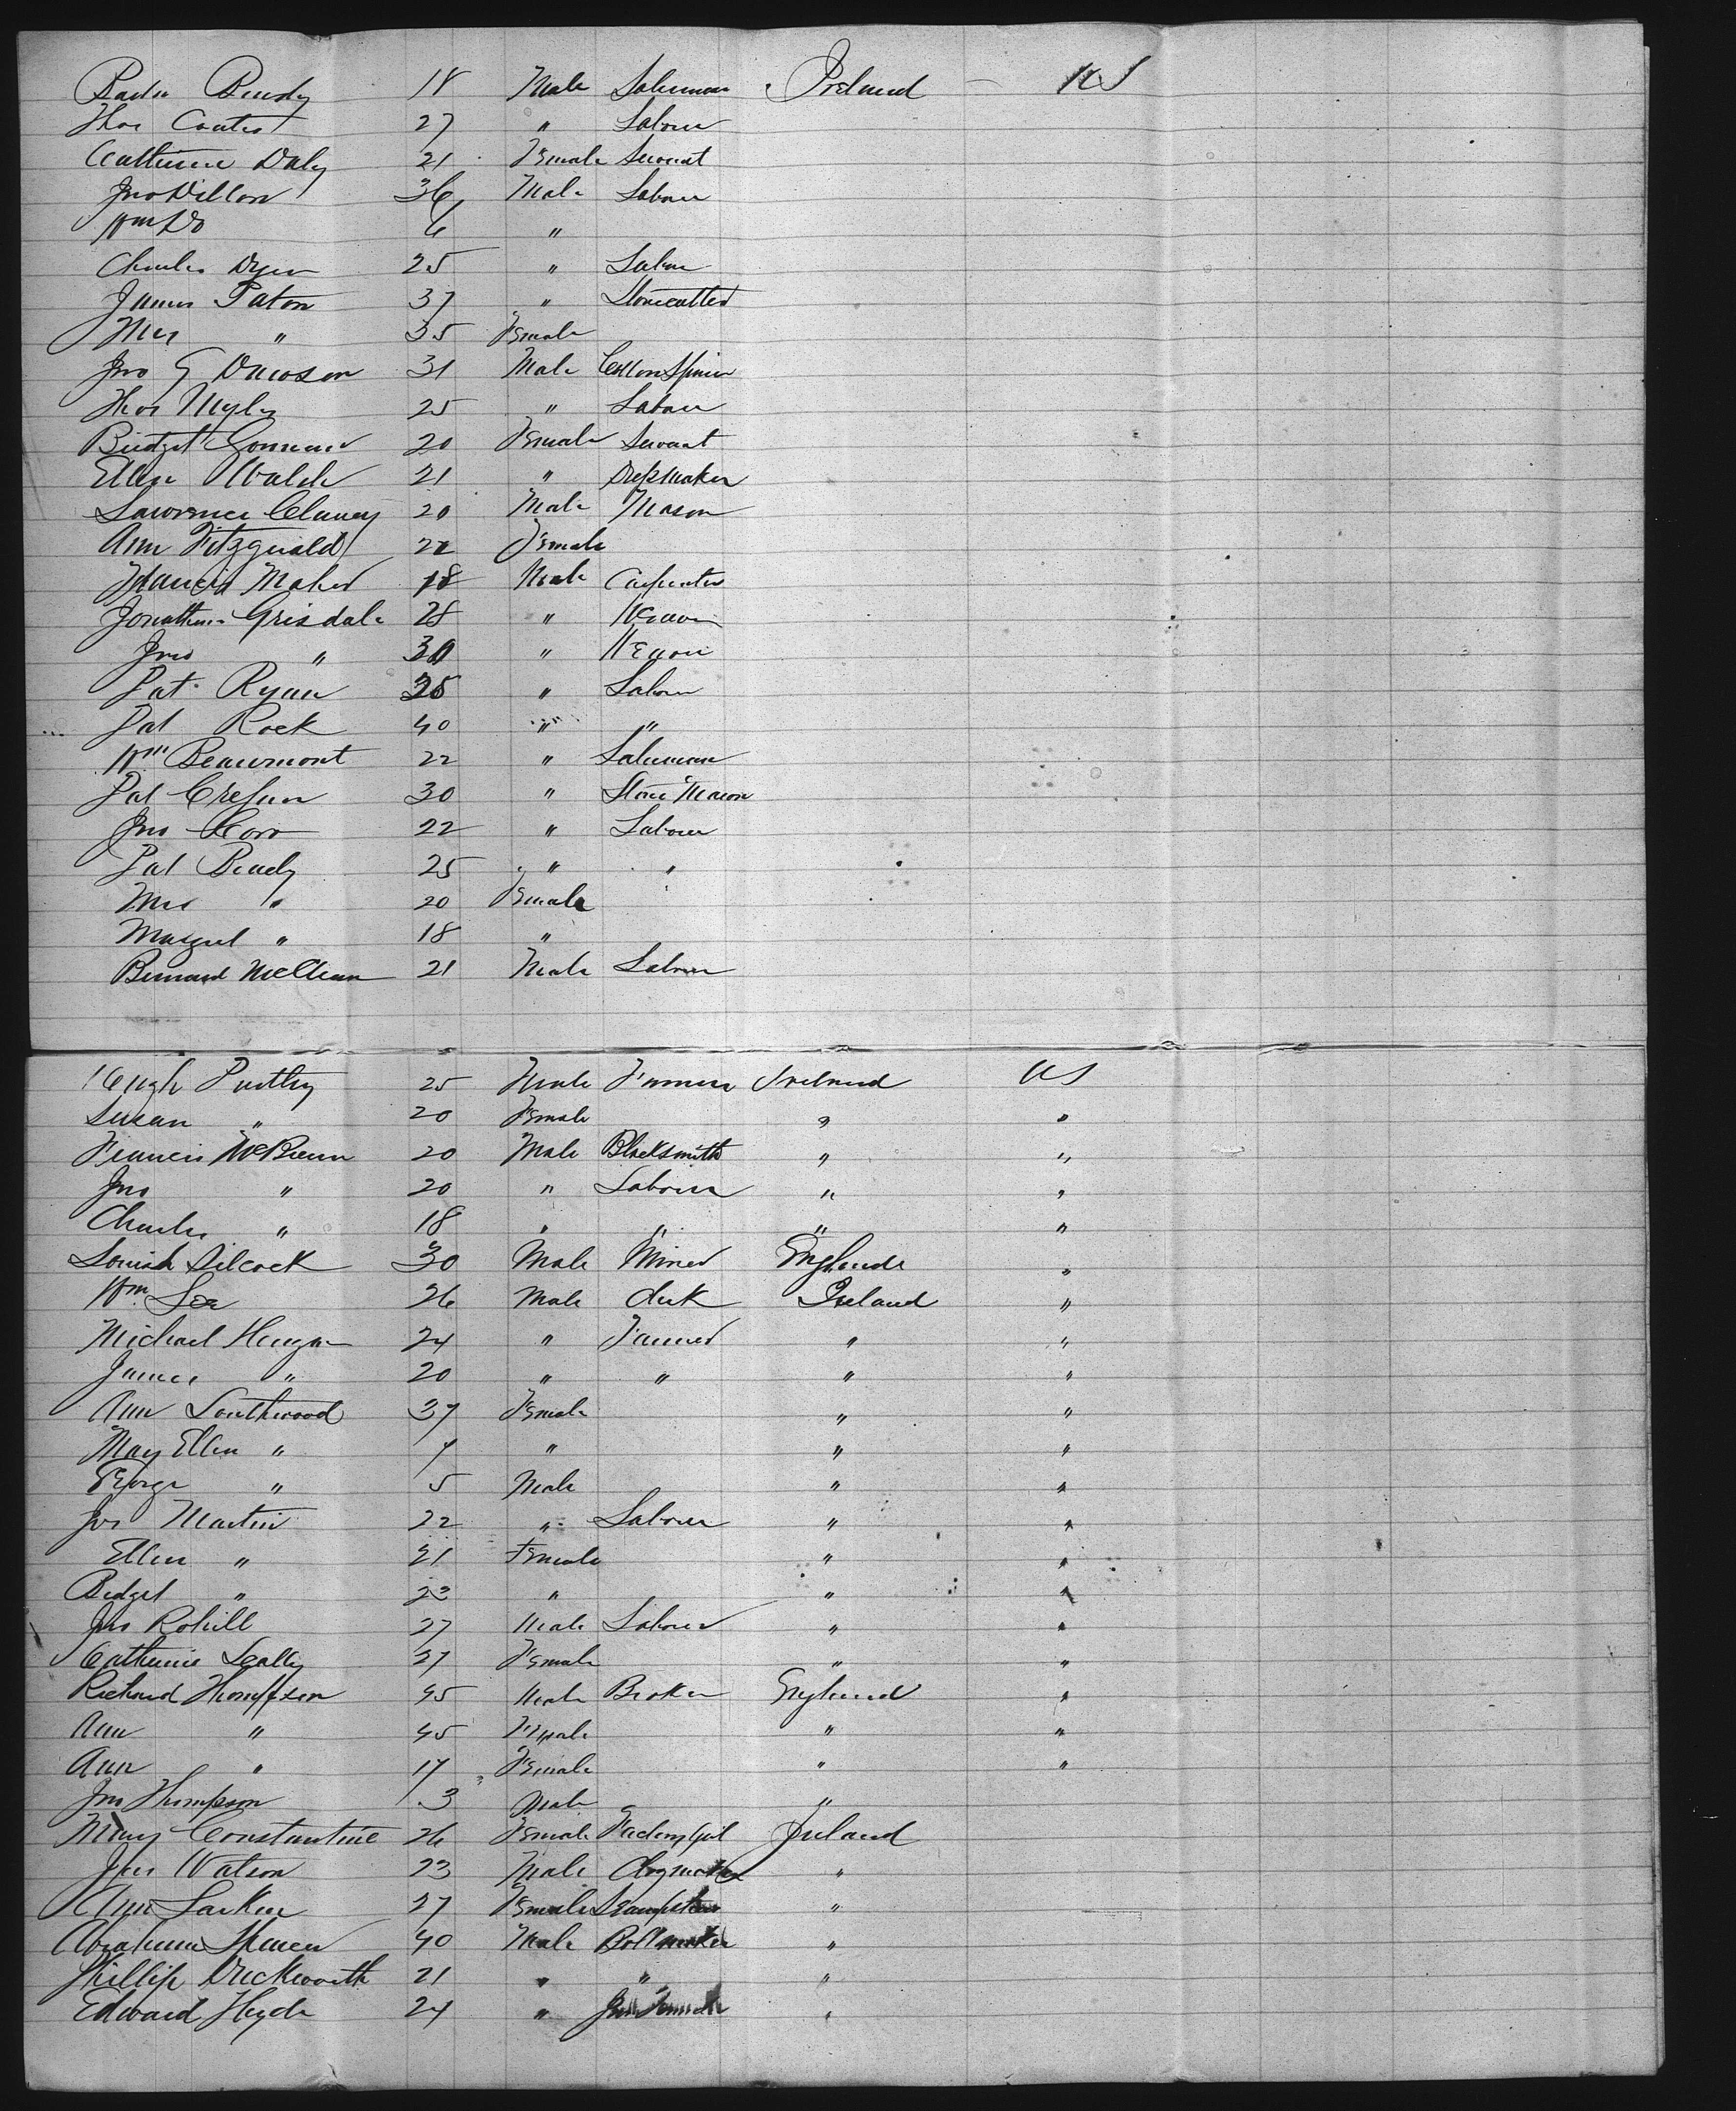 18 Male Ireland US
Thos 27 " Labour
Catherine Daly 21 Female Servant
Jno Dillon 36 Male Labour
Wm Do 6 "
Charles Dyer 25 " Labour
James Paton 37 " Stonecutter
Mrs " 35 Female
Jno G Dawson 31 Male Cotton Spinner
Thos Myly 25 " Labour
Bridget 20 Female Servant
Ellen Walsh 21 " Dressmaker
Lawrence Clancy 20 Male Mason
Ann Fitzgerald Female
Francis Maher 18 Male Carpenter
Jonathan Grisdale 28 " Weaver
Jno " 30 " Weaver
Pat Ryan " Labour
Pat Rock 40 " "
Wm Beaumont 22 " Salesman
Pat 30 " Stone Mason
Jno 22 " Labour
Pat Brady 25 " "
Mrs " 20 Female
Margret " 18 "
Bernard McClean 21 Male Labour
Hugh 25 Male Ireland US
Susan " 20 Female " "
Francis 20 Male Blacksmith " "
Jno " 20 " Labour " "
Charles " 18 " " " "
Silcock 30 Male Miner England "
Wm Lee 26 Male Clerk Ireland "
Michael 24 " " "
James " 20 " " " "
Ann Southwood 37 Female " "
Mary Ellen " 7 " " "
George " 5 Male " "
Martin 22 " Labour " "
Ellen " 21 Female " "
Bridget " " " "
Jno 27 Male Labour " "
Catherine Scally Female " "
Richard Thompson 45 Male Broker England "
Ann " 45 Female " "
Ann " 17 Female " "
Jno Thompson 3 Male "
Mary Constantine 26 Female Factory Girl Ireland
Watson 23 Male Clogmaker "
Ann Larken 27 Female "
Abraham Spencer 40 Male Boltmaker "
Phillip Duckworth 21 " " "
Edward Hyde 24 " "